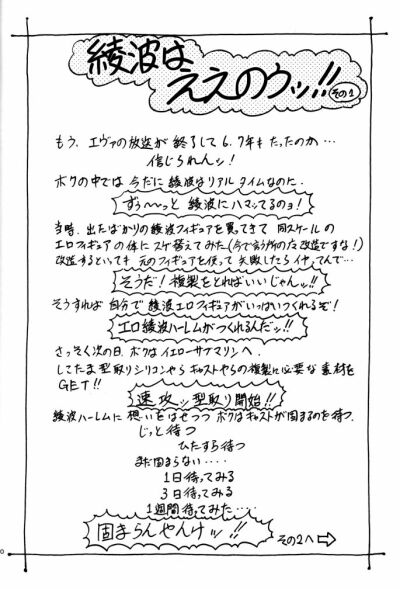 綾波は
ええのウッ!!
その1
もう、エヴァの放送が終了して6.7年もたったのか…
信じられんッ!
ボクの中では今だに綾波はリアルタイムなのに.
ずぅ〜〜っと綾波にハマってるのョ!
当時、出たばかりの綾波フィギュアを買ってきて同スケールの
エロフィギュアの体にスゲ替えてみた(今で言う所の改造ですな!)
改造するといっても元のフィギュアを使って失敗したらイヤなんで…
そうだ!複製をとればいいじゃんッ!!
そうすれば自分で綾波エロフィギュアがいっぱいつくれるぞ!
エロ綾波ハーレムがつくれるんだッ!!
さっそく次の日、ボクはイエローサブマリンへ.
してたま型取りシリコンやらキャストやらの複製に必要な素材を
GET!!
速攻ッ型取り開始!!
綾波ハーレムに想いをはせつつボクはキャストが固まるのを待つ.
じっと待つ
ひたすら待つ
まだ固まらない‥‥
1日待ってみる
3日待ってみる
1週間待ってみた‥‥
固まらんやんけッ!!
その2へ⇨